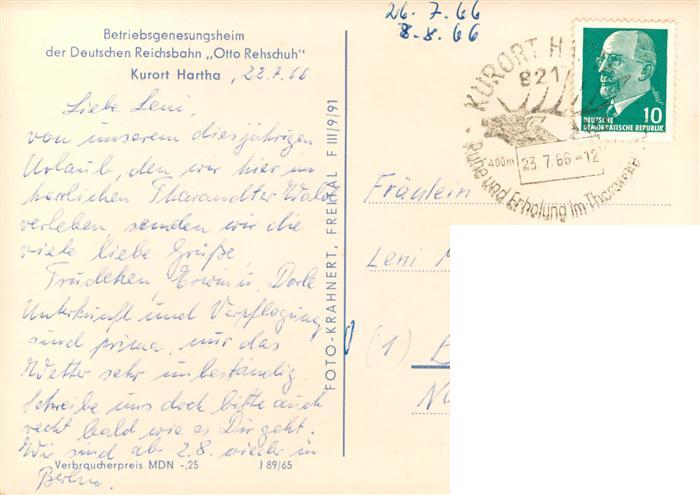 Betriebsgenesungsheim
der Deutschen Reichsbahn „Otto Rehschuh"
Kurort Hartha, 22.7.66
Liebe Leni,
von unserem diesjährigen
Urlaub, den wir hier im
herrlichen Tharandter Wald
verleben, senden wir die
viele liebe Grüße,
Trudchen, Erwin u. Dorle
Unterkunft und Verpflegung
sind prima, nur das
Wetter sehr unbeständig.
Schreibe uns doch bitte auch
recht bald wie es Dir geht.
Wir sind ab 2.8. wieder in
Berlin.
Verbraucherpreis MDN -,25 J 89/65
FOTO-KRAHNERT, FREITAL F III/9/91
26. 7. 66
8. 8. 66
KURORT H
821
400m 23.7.66-12
Ruhe und Erholung im Tharandter
10
DEUTSCHE
DEMOKRATISCHE REPUBLIK
Fräulein
Leni
(1) B